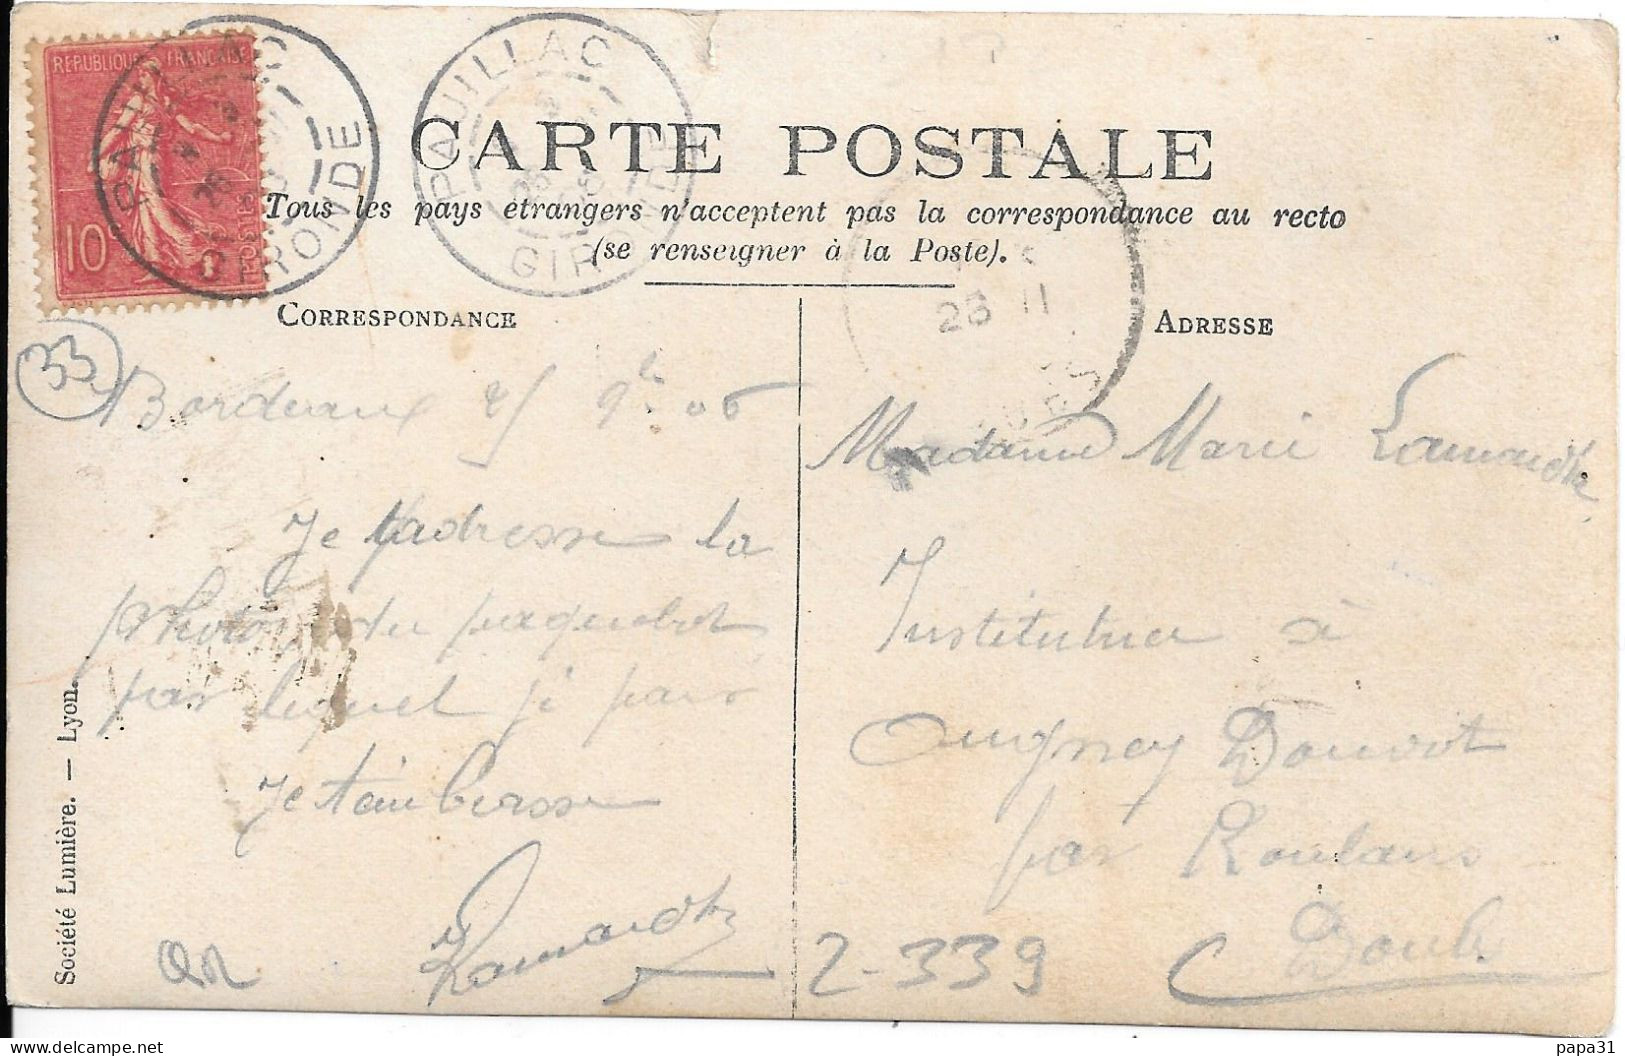 REPUBLIQUE FRANÇAISE
10
POSTES
PAUILLAC
GIRONDE
PAUILLAC
GIRONDE
CARTE POSTALE
Tous les pays étrangers n'acceptent pas la correspondance au recto
(se renseigner à la Poste).
23 11
CORRESPONDANCE
ADRESSE
33
Bordeaux 9bre 06
Je t'adresse la
photog. du paquebot
par lequel je pars
Je t'embrasse
Madame Marie
Institutrice à
Ougney Douvot
par Roulans
Doubs
2-339
Société Lumière. — Lyon.
papa31